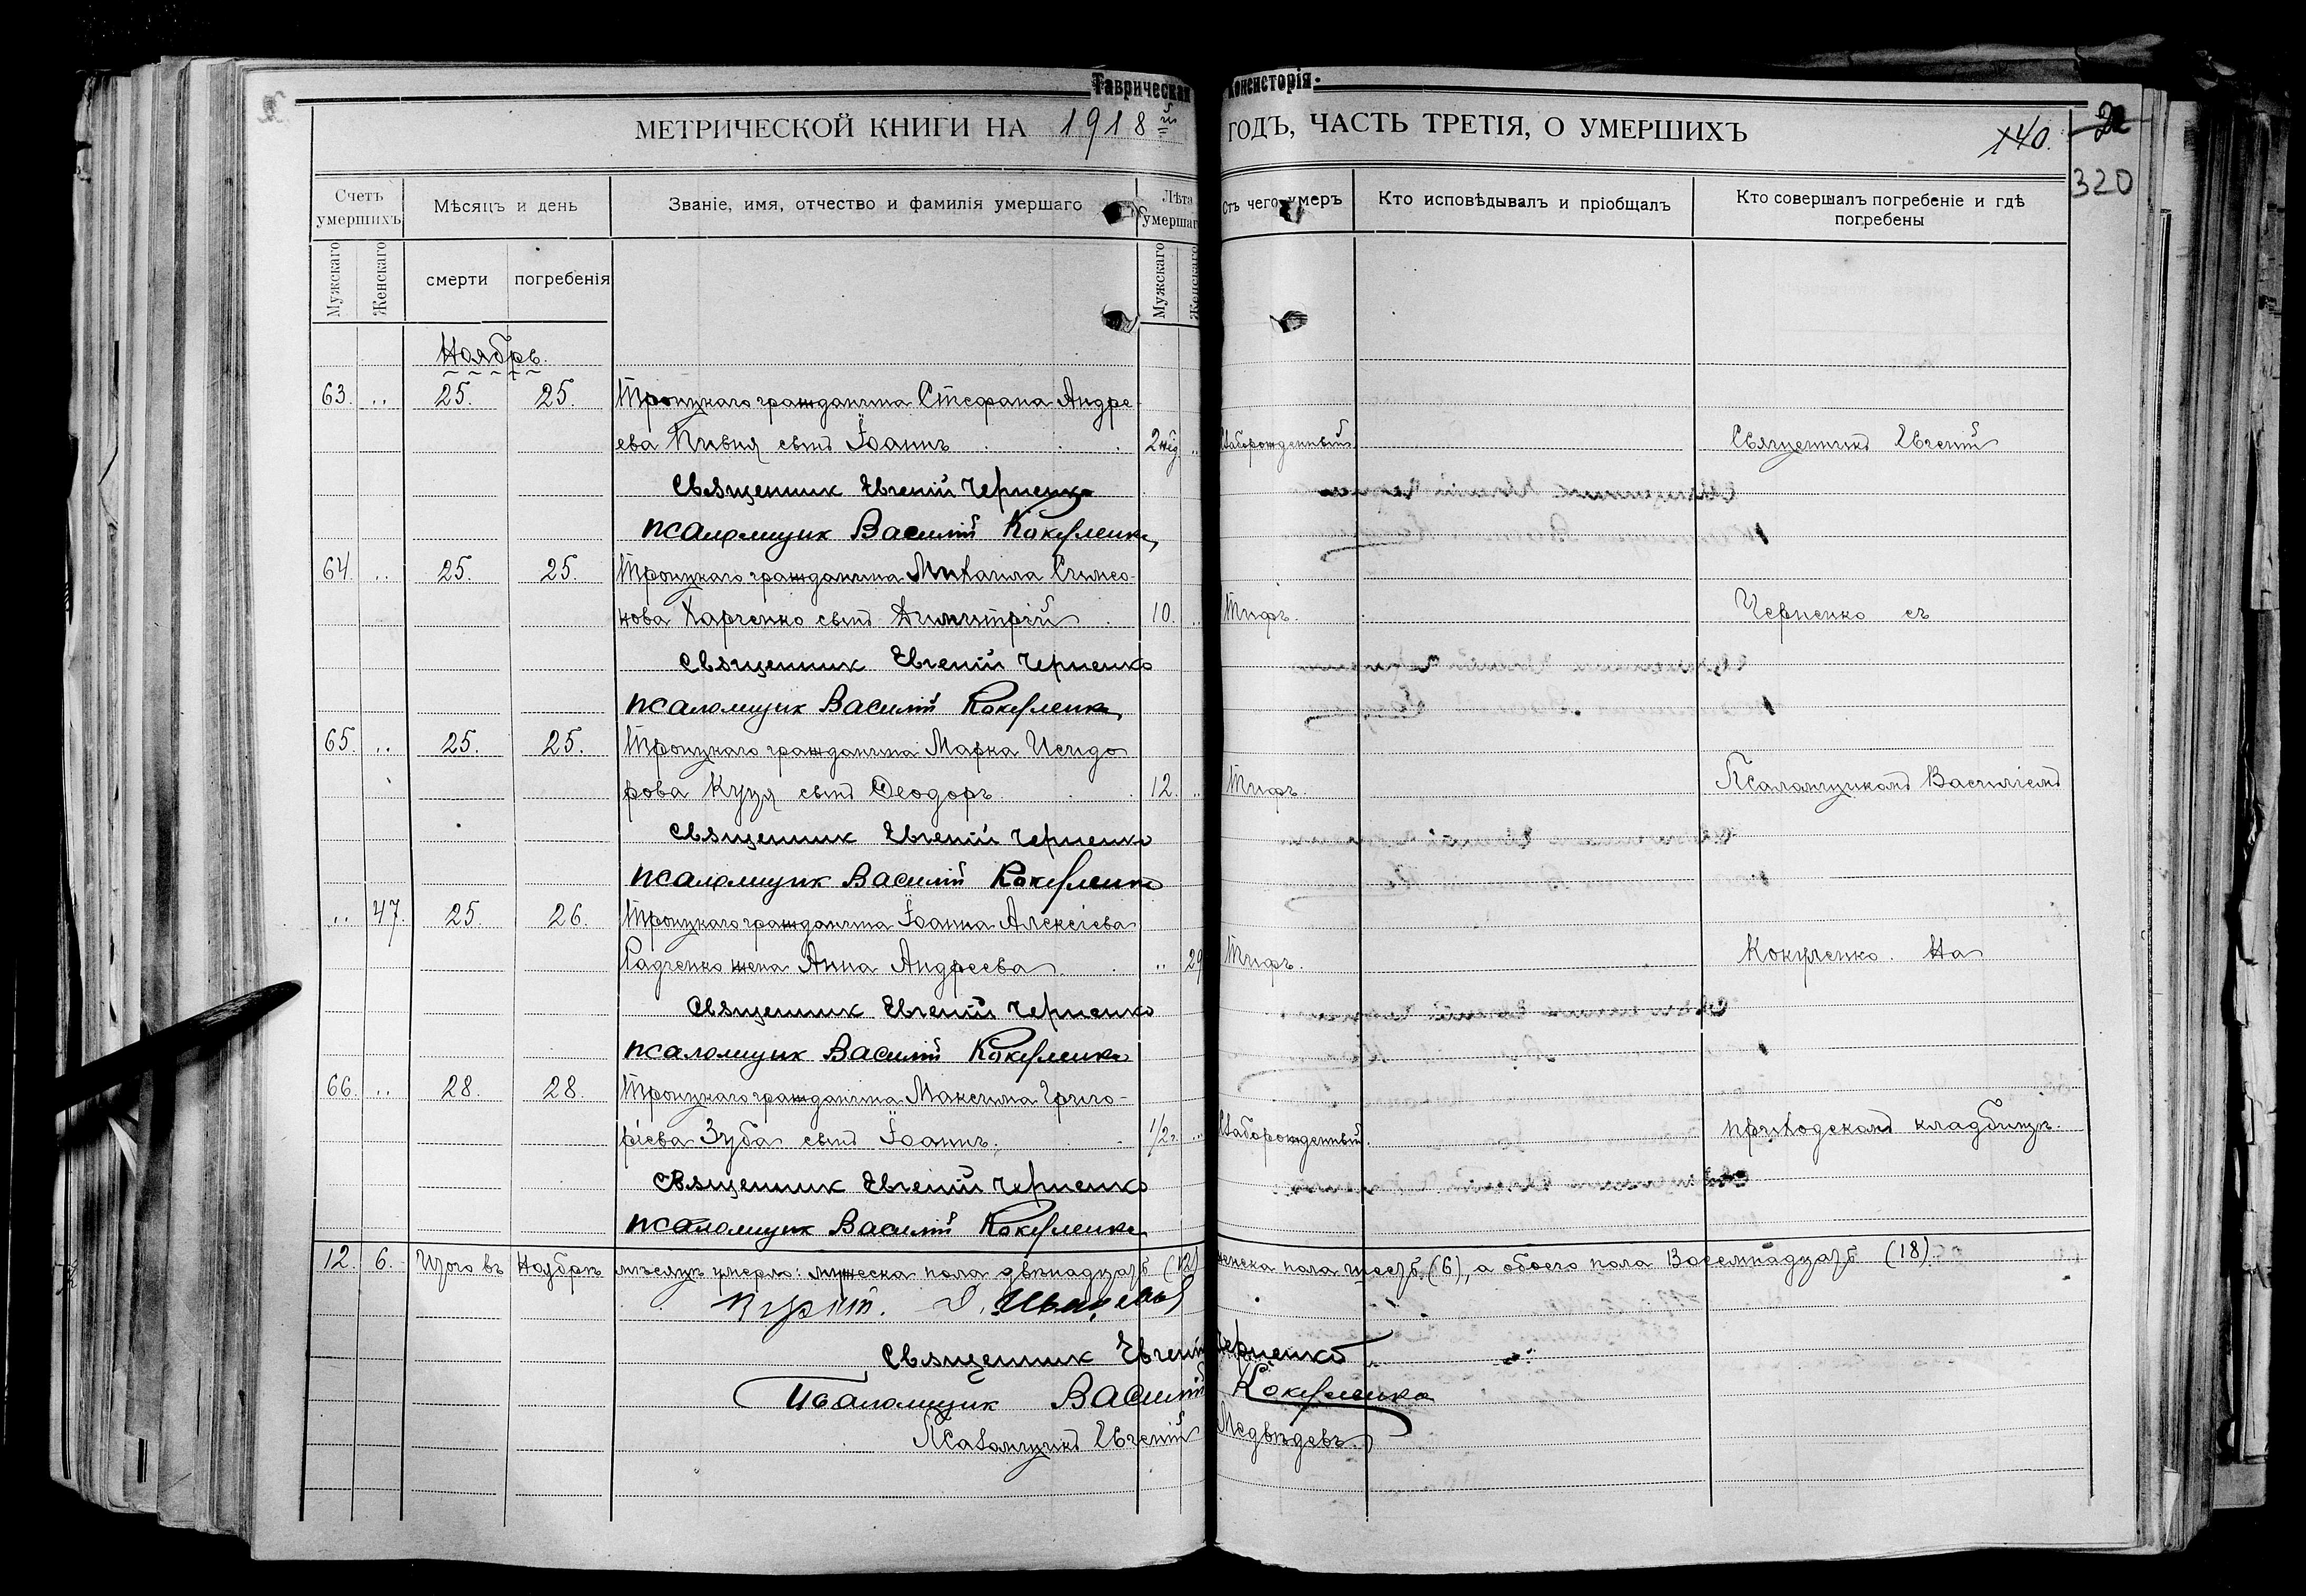 Таврическая Консисторія.
МЕТРИЧЕСКОЙ КНИГИ НА 1918й ГОДЪ, ЧАСТЬ ТРЕТІЯ, О УМЕРШИХЪ
140. 320
Счетъ умершихъ Мѣсяцъ и день Званіе, имя, отчество и фамилія умершаго Лѣта умершаго Отъ чего умеръ Кто исповѣдывалъ и пріобщалъ Кто совершалъ погребеніе и гдѣ погребены
Мужскаго Женскаго смерти погребенія Мужскаго Женскаго
Ноябрь.
63. .. 25. 25. Троицкаго гражданина Стефана Андре-
ева Кивия сынъ Іоаннъ 2 нед. .. Слаборожденный Священникъ Евгеній
Священник Евгеній Черненко
псаломщик Василій Кокуленко
64. .. 25. 25. Троицкаго гражданина Михаила Симео-
нова Харченко сынъ Димитрій 10. .. Тифъ. Черненко съ
Священник Евгеній Черненко
псаломщик Василій Кокуленко
65. .. 25. 25. Троицкаго гражданина Марка Исидо
рова Куця сынъ Ѳеодоръ 12. .. Тифъ. Псаломщикомъ Василіемъ
Священник Евгеній Черненко
псаломщик Василій Кокуленко
.. 47. 25. 26. Троицкаго гражданина Іоанна Алексіева
Радченко жена Анна Андреева .. 29 Тифъ. Кокуленко. На
Священник Евгеній Черненко
псаломщик Василій Кокуленко
66. .. 28. 28. Троицкаго гражданина Максима Григо-
ріева Зуба сынъ Іоаннъ. 1/2 г. .. Слаборожденный. приходскомъ кладбищѣ.
Священник Евгеній Черненко
псаломщик Василій Кокуленко
12. 6. Итого въ Ноябрѣ мѣсяцѣ умерло: мужеска пола двѣнадцать (12) женска пола шесть (6), а обоего пола Восемнадцать (18).
Священник Евгеній Черненко
Псаломщик Василій Кокуленко
Псаломщикъ Евгеній Медвѣдевъ